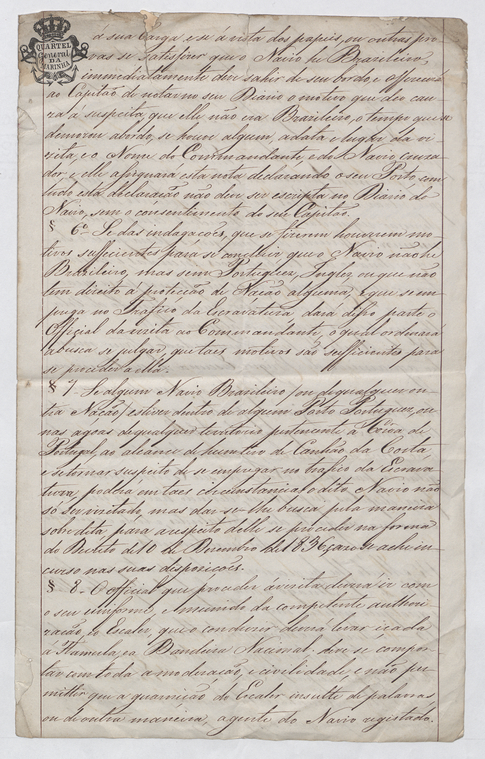 QUARTEL
General
DA
MARINHA
á sua Carga e se á vista dos papeis, ou outras pro
vas se satisfizer que o Navio he Brazileiro,
immediatamente deve sahir de seu bordo, e offerecer
ao Capitão de notar no seu Diario o motivo que deo cau
za á suspeita que elle não era Brazileiro, o tempo que se
demorou abordo, se houve algum, a data e lugar da vi
zita, e o Nome do Commandante e do Navio cruza
dor, e elle assignará esta nota declarando o seu Porto, sem
tudo esta declaração não deve ser escripta no Diario do
Navio, sem o consentimento do seu Capitão.
§ 6º Se das indagações, que se fizerem houverem mo
tivos sufficientes para se concluir que o Navio não he
Brazileiro, mas sem Portuguez, Inglez, ou que não
tem direito á protecção de Nação alguma, e que se em
prega no Trafico da Escravatura dará disso parte o
Official da vizita ao Commandante, o qual ordenará
a busca se julgar, que taes motivos são sufficientes para
se proceder a ella.
§ 7. Se algum Navio Brazileiro (ou de qualquer ou
tra Nação) estiver dentro de algum Porto Portuguez, ou
nas agoas de qualquer territorio pertencente á Coroa de
Portugal, ao alcance de hum tiro de Canhão da Costa
e se tornar suspeito de se empregar no trafico da Escrava
tura, poderá em taes circunstancias o dito Navio não
só ser vizitado, mas dar-se-lhe busca, pela maneira
sobredita, para a respeito delle se proceder na forma
do Decreto de 10 de Dezembro de 1836, caso se ache in
curso nas suas disposições.
§ 8. O official que proceder á vezita deverá ir com
o seu uniforme, e munido da competente authori
zação, o Escaler, que o conduzir deverá levar içada
a Flamula, e a Bandeira Nacional: deve se compor
tar com toda a moderação, e civilidade, e não per
mittir que a guarnição do Escaler insulte de palavras
ou de outra maneira, a gente do Navio registado.